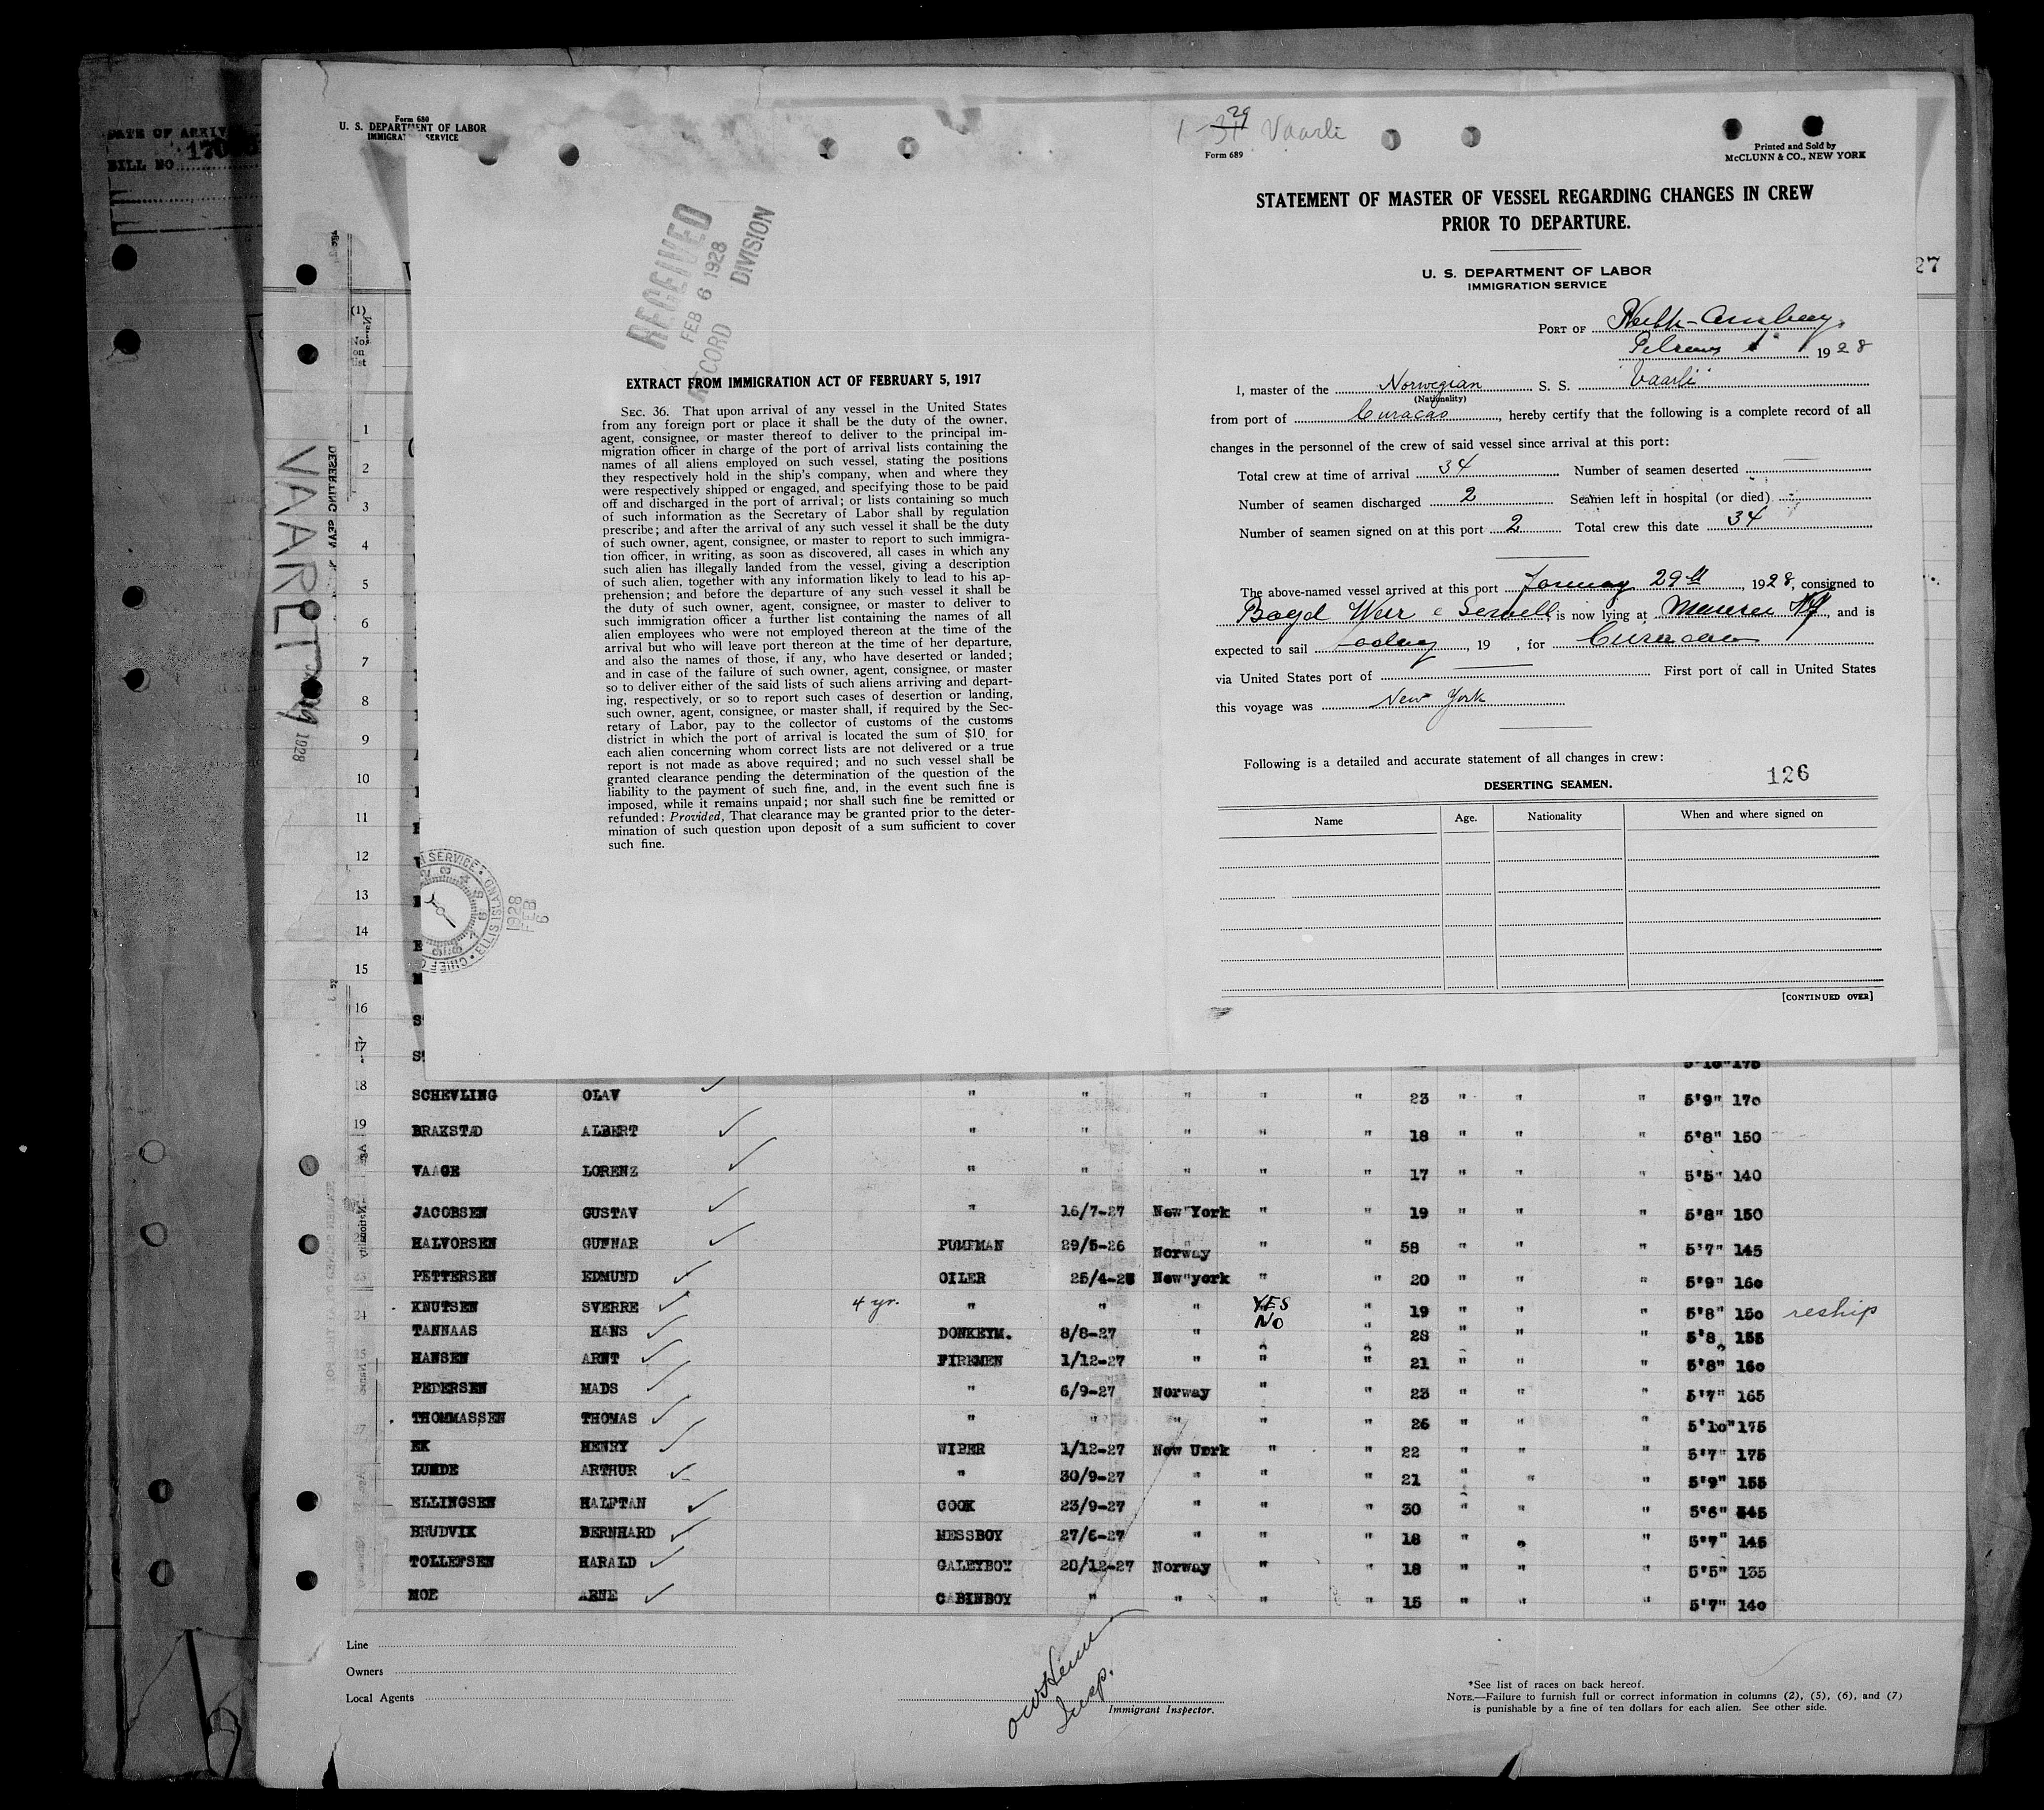 DATE OF ARRIV
BILL NO 170
Form 680
U. S. DEPARTMENT OF LABOR
IMMIGRATION SERVICE
VAARLI
1928
(1)
No.
on
list
RECEIVED
FEB 6 1928
RECORD DIVISION
EXTRACT FROM IMMIGRATION ACT OF FEBRUARY 5, 1917
SEC. 36. That upon arrival of any vessel in the United States
from any foreign port or place it shall be the duty of the owner,
agent, consignee, or master thereof to deliver to the principal im-
migration officer in charge of the port of arrival lists containing the
names of all aliens employed on such vessel, stating the positions
they respectively hold in the ship's company, when and where they
were respectively shipped or engaged, and specifying those to be paid
off and discharged in the port of arrival; or lists containing so much
of such information as the Secretary of Labor shall by regulation
prescribe; and after the arrival of any such vessel it shall be the duty
of such owner, agent, consignee, or master to report to such immigra-
tion officer, in writing, as soon as discovered, all cases in which any
such alien has illegally landed from the vessel, giving a description
of such alien, together with any information likely to lead to his ap-
prehension; and before the departure of any such vessel it shall be
the duty of such owner, agent, consignee, or master to deliver to
such immigration officer a further list containing the names of all
alien employees who were not employed thereon at the time of the
arrival but who will leave port thereon at the time of her departure,
and also the names of those, if any, who have deserted or landed;
and in case of the failure of such owner, agent, consignee, or master
so to deliver either of the said lists of such aliens arriving and depart-
ing, respectively, or so to report such cases of desertion or landing,
such owner, agent, consignee, or master shall, if required by the Sec-
retary of Labor, pay to the collector of customs of the customs
district in which the port of arrival is located the sum of $10 for
each alien concerning whom correct lists are not delivered or a true
report is not made as above required; and no such vessel shall be
granted clearance pending the determination of the question of the
liability to the payment of such fine, and, in the event such fine is
imposed, while it remains unpaid; nor shall such fine be remitted or
refunded: Provided, That clearance may be granted prior to the deter-
mination of such question upon deposit of a sum sufficient to cover
such fine.
1928
FEB
6
1 - 31 29 Vaarli
Form 689
Printed and Sold by
McCLUNN & CO., NEW YORK
STATEMENT OF MASTER OF VESSEL REGARDING CHANGES IN CREW
PRIOR TO DEPARTURE.
U. S. DEPARTMENT OF LABOR
IMMIGRATION SERVICE
27
PORT OF
1928
I, master of the Norwegian S. S. "Vaarli"
(Nationality)
from port of Curacao, hereby certify that the following is a complete record of all
changes in the personnel of the crew of said vessel since arrival at this port:
Total crew at time of arrival 34 Number of seamen deserted
Number of seamen discharged 2 Seamen left in hospital (or died)
Number of seamen signed on at this port 2 Total crew this date 34
The above-named vessel arrived at this port January 29th, 1928, consigned to
Boyd Weir & Sewell, is now lying at and is
expected to sail today, 19 , for Curacao
via United States port of First port of call in United States
this voyage was New York
Following is a detailed and accurate statement of all changes in crew:
126
DESERTING SEAMEN.
Name Age. Nationality When and where signed on
[CONTINUED OVER]
1
2
3
4
5
6
7
8
9
10
11
12
13
14
15
16
17
5'10" 175
18 SCHEVLING OLAV " " " " " 23 " " " 5'9" 170
19 BRAKSTAD ALBERT " " " " " 18 " " " 5'8" 150
VAAGE LORENZ " " " " " 17 " " " 5'5" 140
JACOBSEN GUSTAV " 16/7-27 New York " " 19 " " " 5'8" 150
HALVORSEN GUNNAR PUMPMAN 29/5-26 Norway " " 58 " " " 5'7" 145
PETTERSEN EDMUND OILER 25/4-28 New york " " 20 " " " 5'9" 160
24 KNUTSEN SVERRE 4 yr. " " " YES " 19 " " " 5'8" 150 reship
TANNAAS HANS DONKEYM. 8/8-27 " NO " 28 " " " 5'8 155
HANSEN ARNT FIREMEN 1/12-27 " " " 21 " " " 5'8" 160
PEDERSEN MADS " 6/9-27 Norway " " 23 " " " 5'7" 165
THOMMASSEN THOMAS " " " " " 26 " " " 5'10" 175
EK HENRY WIPER 1/12-27 New Uork " " 22 " " " 5'7" 175
LUNDE ARTHUR " 30/9-27 " " " 21 " " " 5'9" 155
ELLINGSEN HALFTAN COOK 23/9-27 " " " 30 " " " 5'6" 145
BRUDVIK BERNHARD MESSBOY 27/6-27 " " " 18 " " " 5'7" 145
TOLLEFSEN HARALD GALEYBOY 20/12-27 Norway " " 18 " " " 5'5" 135
MOE ARNE CABINBOY " " " " 15 " " " 5'7" 140
Line
Owners
Local Agents
Insp.
Immigrant Inspector.
*See list of races on back hereof.
NOTE.—Failure to furnish full or correct information in columns (2), (5), (6), and (7)
is punishable by a fine of ten dollars for each alien. See other side.